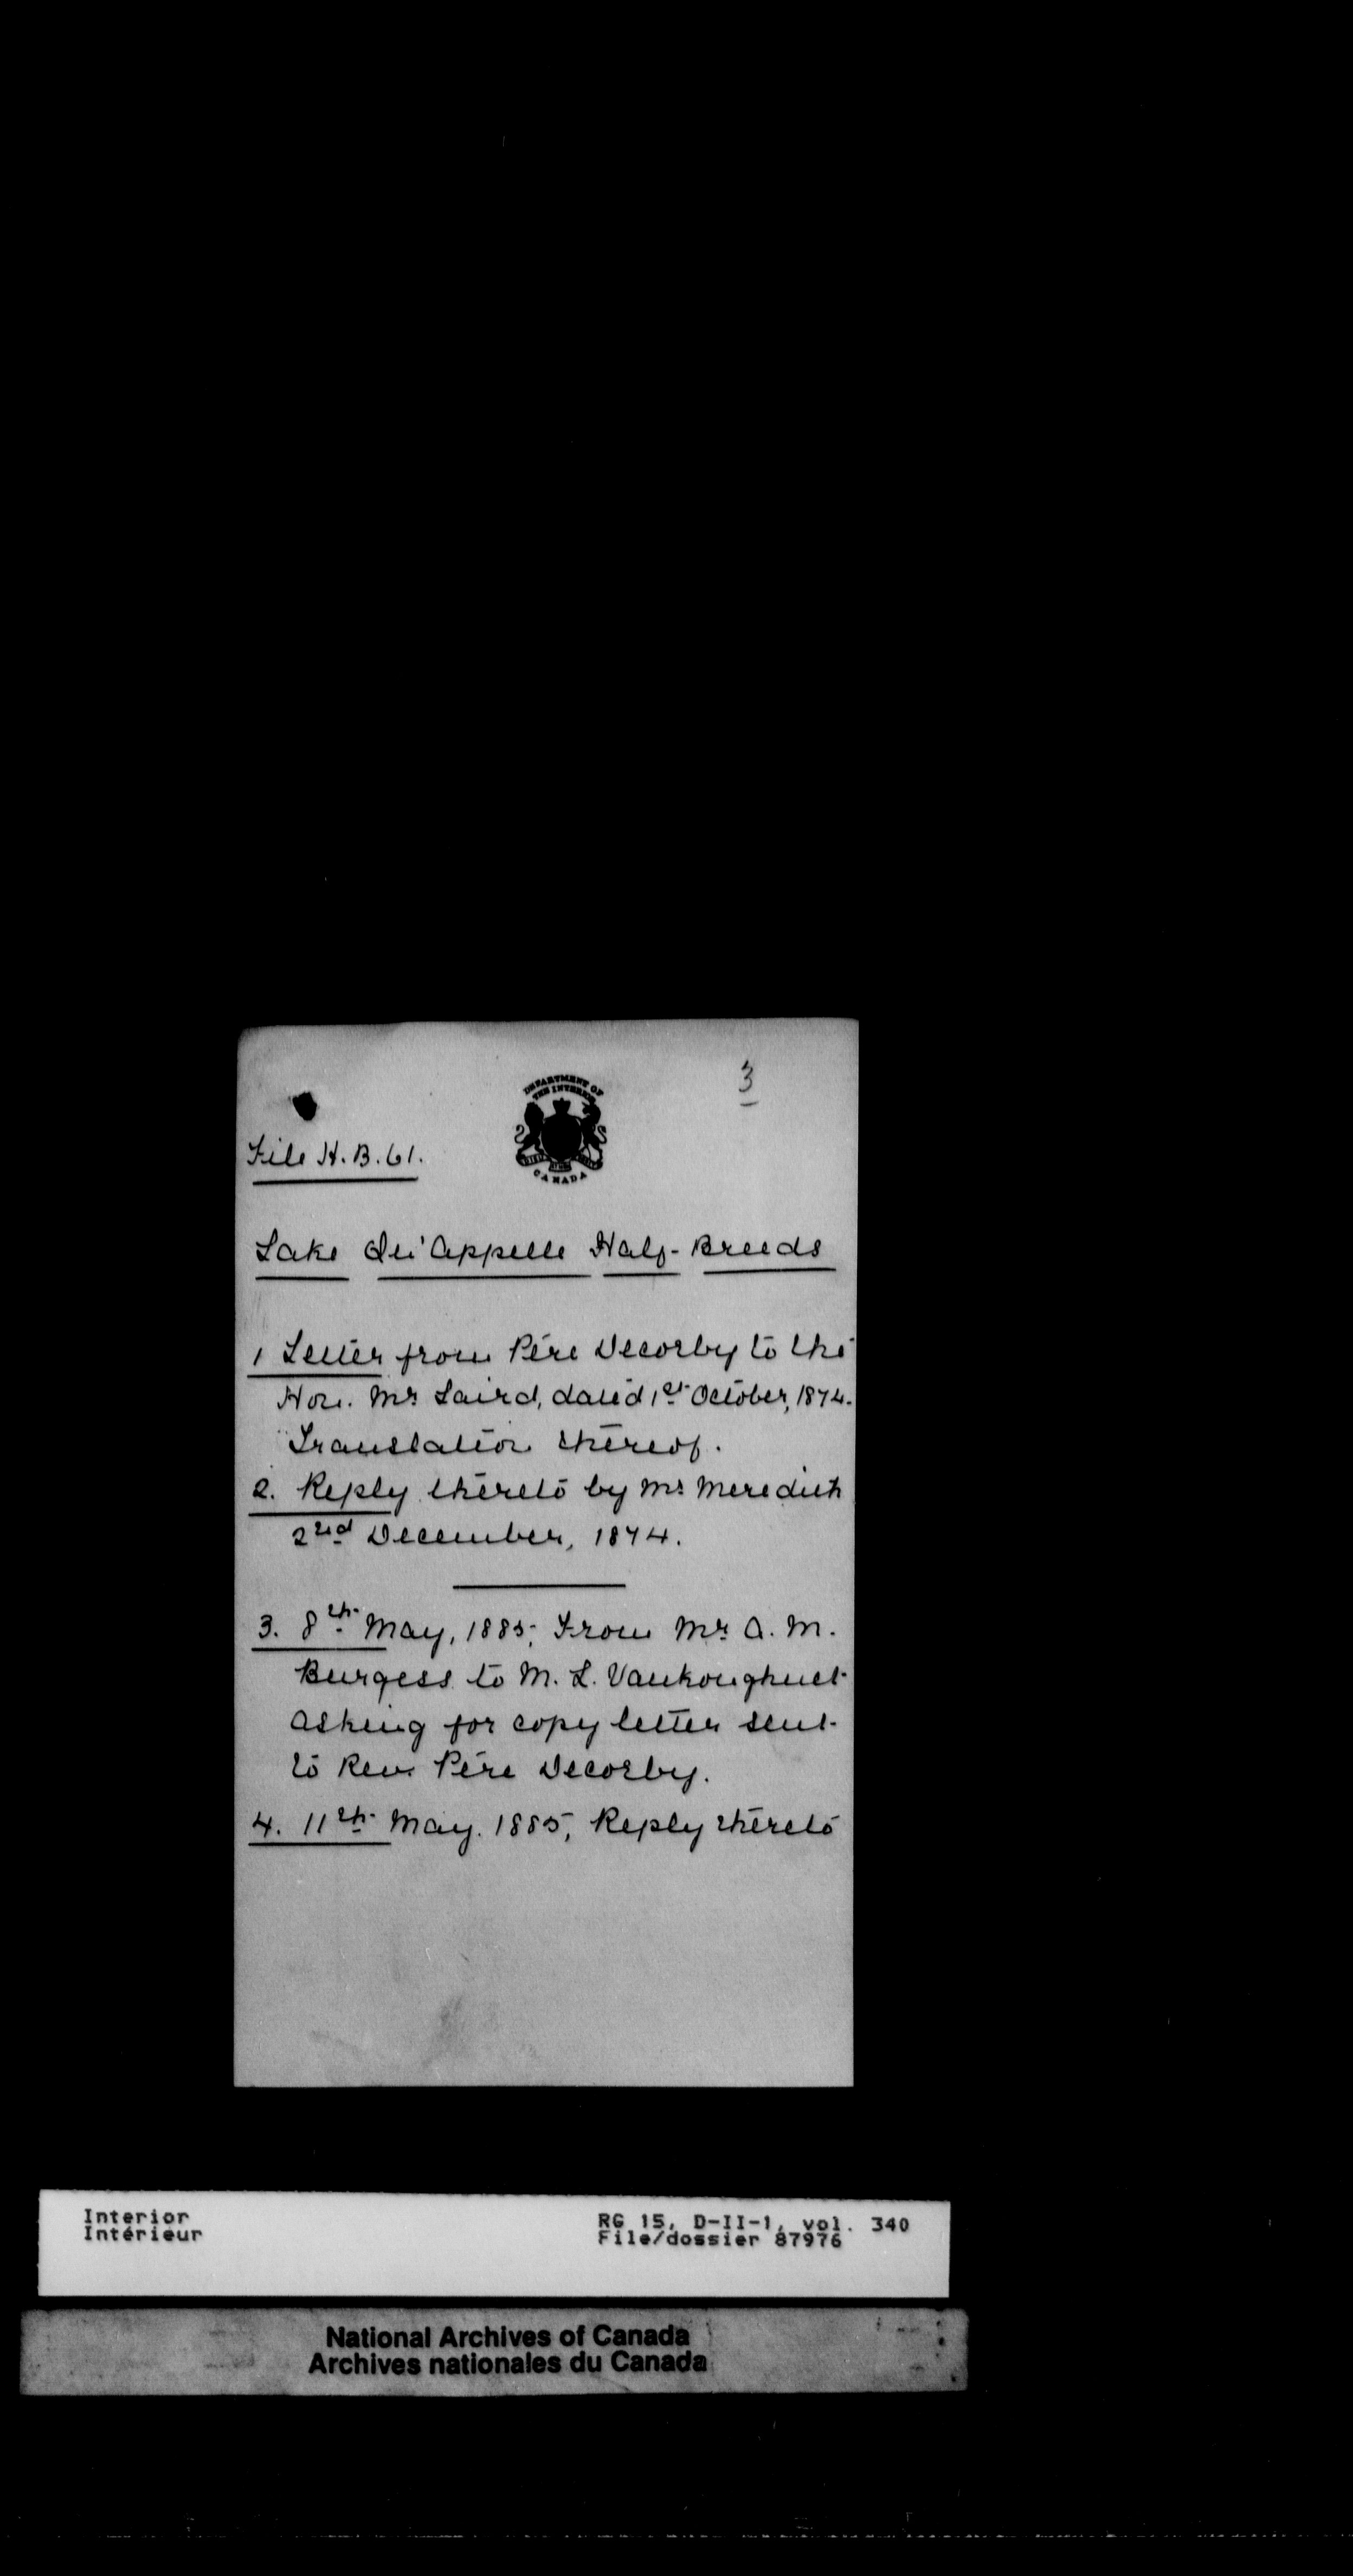 3
DEPARTMENT OF
THE INTERIOR
CANADA
File H.B. 61.
Lake Qu'Appelle Half-Breeds
1 Letter from Père Decorby to the
Hon. Mr Laird, dated 1st October, 1874.
Translation thereof.
2. Reply thereto by Mr Meredith
2nd December, 1874.
3. 8th May, 1885, From Mr A. M.
Burgess to M. L. Vankoughnet
asking for copy letter sent
to Rev. Père Decorby.
4. 11th May. 1885, Reply thereto
Interior
Intérieur
RG 15, D-II-1, vol. 340
File/dossier 87976
National Archives of Canada
Archives nationales du Canada